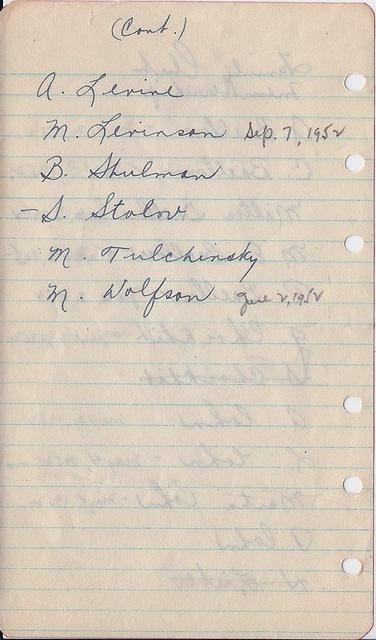 (Cont.)
A. Levine
M. Levinson Sep. 7, 1952
B. Shulman
- S. Stolov
M. Tulchinsky
M. Wolfson June 2, 1952